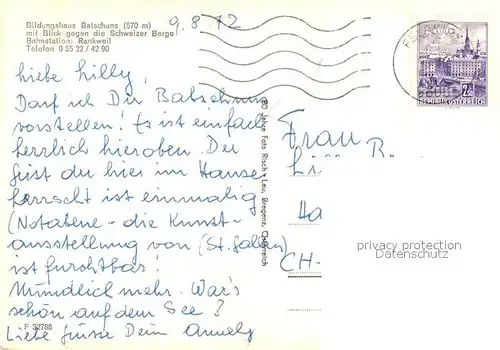 Bildungshaus Batschuns (570 m)
mit Blick gegen die Schweizer Berge
Bahnstation: Rankweil
Telefon 0 55 22 / 42 90
9.8.72
2S
REPUBLIK ÖSTERREICH
Liebe Lilly,
Darf ich Dir Batschuns
vorstellen! Es ist einfach
herrlich hieroben. Der
Geist der hier im Hause
herrscht ist einmalig
(Notabene - die Kunst-
ausstellung von (St. Gallen)
ist furchtbar!
Mündlich mehr. War's
schön auf dem See?
Liebe Grüsse Dein
F 32788
Foto Risch-Lau, Bregenz, Österreich
Frau
Li R.
Ha
CH-
privacy protection
Datenschutz